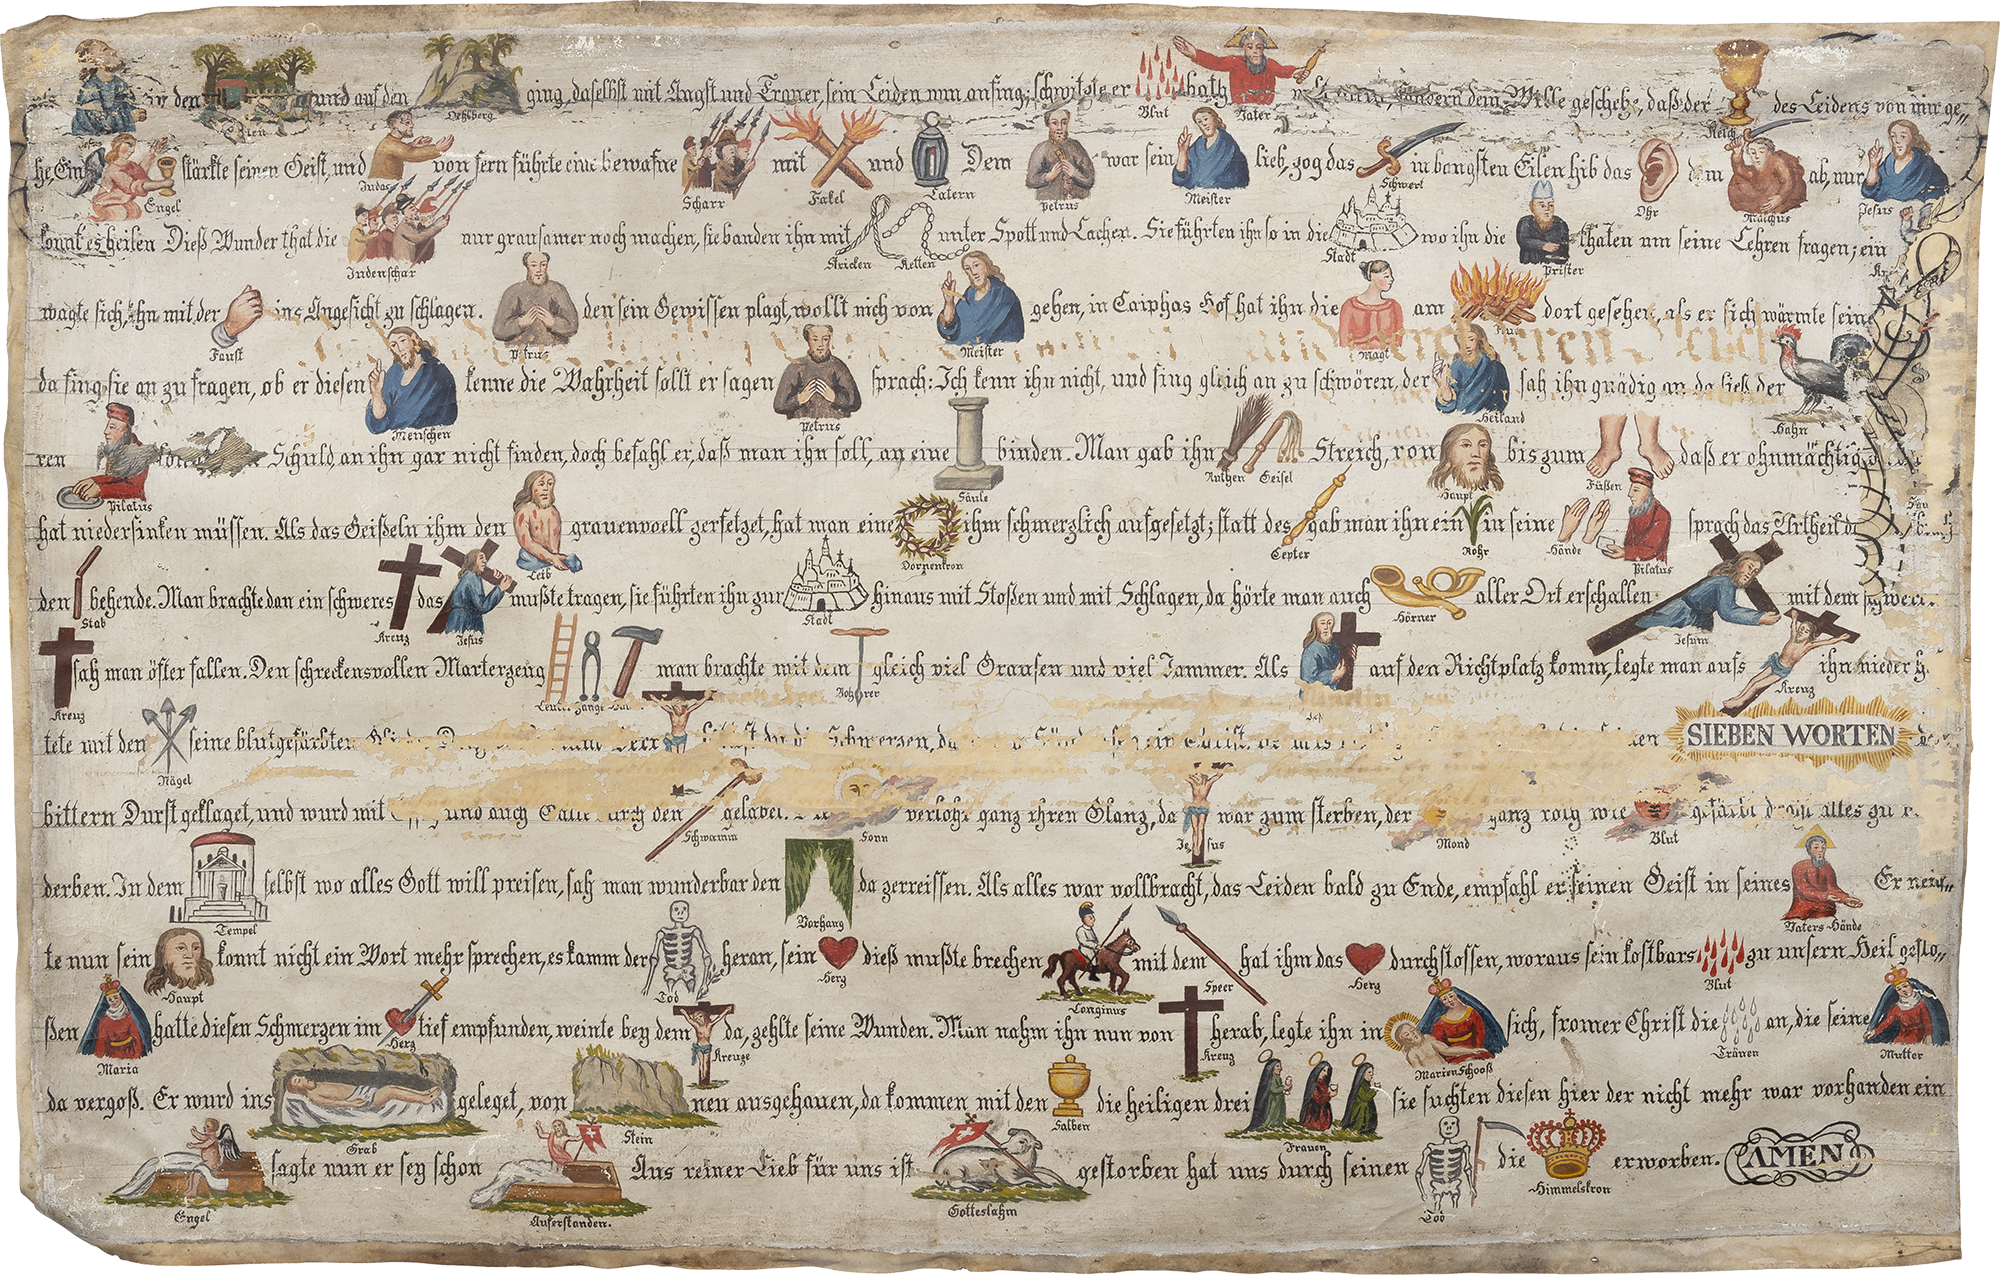 in den und auf den ging, daselbst mit Angst und Trauer, sein Leiden nun anfing; schwitzte er hath sondern dem Wille geschehe, daß der des Leidens von mir ge„
Oehlberg Blut Vater Kelch
he, Ein stärkte seinen Geist, und von fern führte eine bewafne mit und Dem war sein lieb, zog das in bangsten Eilen hib das dem ab, nur
Engel Judas Scharr Fakel Latern Petrus Meister Schwert Ohr Malchus Jesus
konnt es heilen Dieß Wunder that die nur grausamer noch machen, sie banden ihn mit unter Spott und Lachen. Sie führten ihn so in die wo ihn die thaten um seine Lehren fragen; ein
Judenschar Stricken Ketten Stadt Prister
wagte sich, ihn mit der ins Angesicht zu schlagen. den sein Gewissen plagt, wollt nich von gehen, in Caiphas Hof hat ihn die am dort gesehen, als er sich wärmte seine
Faust Petrus Meister Magt
da fing sie an zu fragen, ob er diesen kenne die Wahrheit sollt er sagen sprach: Ich kenn ihn nicht, und fing gleich an zu schwören, der sah ihn gnädig an da ließ der
Menschen Petrus Heiland Hahn
ren Schuld an ihn gar nicht finden, doch befahl er, daß man ihn soll, an eine binden. Man gab ihn Streich, von bis zum daß er ohnmächtig
Pilatus Säule Ruthen Geisel Haupt Füßen
hat niedersinken müssen. Als das Geißeln ihm den grauenvoell zersetzet, hat man eine ihm schmerzlich aufgesetzt; statt des gab man ihn ein in seine sprach das Urtheil
Leib Dornenkron Cepter Rohr Hände Pilatus
den behende. Man brachte dan ein schweres das mußte tragen, sie führten ihn zur hinaus mit Stoßen und mit Schlagen, da hörte man auch aller Ort erschallen mit dem schweren
Stab Kreuz Jesus Stadt Hörner Jesum
sah man öfter fallen. Den schreckensvollen Marterzeug man brachte mit dem gleich viel Grausen und viel Jammer. Als auf den Richtplatz komm, legte man aufs ihn nieder
Kreuz Zange Bohrer Kreuz
tete mit den seine blutgefärbten Schmerzen, SIEBEN WORTEN
Nägel
bittern Durst geklaget, und wurd mit und auch den gelabet. verlohr ganz ihren Glanz, da war zum sterben, der ganz roth wie gefärbt alles zu
Schwamm Sonn Jesus Mond Blut
derben. In dem selbst wo alles Gott will preisen, sah man wunderbar den da zerreissen. Als alles war vollbracht, das Leiden bald zu Ende, empfahl er seinen Geist in seines Er neig„
Tempel Vorhang Vaters Hände
te nun sein konnt nicht ein Wort mehr sprechen, es kamm der heran, sein dieß mußte brechen mit dem hat ihm das durchstossen, woraus sein kostbars zu unsern Heil geflo„
Haupt Tod Herz Longinus Speer Herz Blut
ßen hatte diesen Schmerzen im tief empfunden, weinte bey dem da, zehlte seine Wunden. Man nahm ihn nun von herab, legte ihn in sich, fromer Christ die an, die seine
Maria Herz Kreuze Kreuz Marien Schooß Tränen Mutter
da vergoß. Er wurd ins geleget, von neu ausgehauen, da kommen mit den die heiligen drei sie suchten diesen hier der nicht mehr war vorhanden ein
Grab Stein Salben Frauen
sagte nun er sey schon Aus reiner Lieb für uns ist gestorben hat uns durch seinen die erworben. AMEN
Engel Auferstanden. Gotteslahm Tod Himmelskron